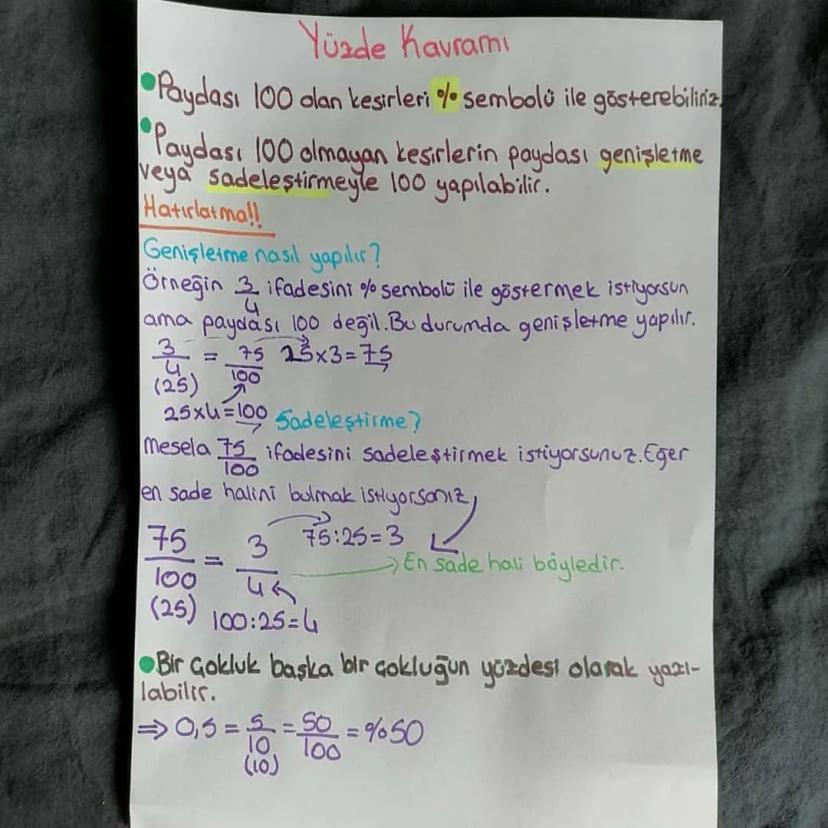 Yüzde Kavramı
•Paydası 100 olan kesirleri % sembolü ile gösterebiliriz.
•Paydası 100 olmayan kesirlerin paydası genişletme
veya sadeleştirmeyle 100 yapılabilir.
Hatırlatma!!
Genişletme nasıl yapılır?
Örneğin 3/4 ifadesini % sembolü ile göstermek istiyorsun
ama paydası 100 değil. Bu durumda genişletme yapılır.
3/4 = 75/100 25x3=75
(25)
25x4=100 Sadeleştirme?
Mesela 75/100 ifadesini sadeleştirmek istiyorsunuz. Eğer
en sade halini bulmak istiyorsanız,
75/100 = 3/4 75:25=3
→En sade hali böyledir.
(25) 100:25=4
•Bir çokluk başka bir çokluğun yüzdesi olarak yazı-
labilir.
⇒ 0,5 = 5/10 = 50/100 = %50
(10)